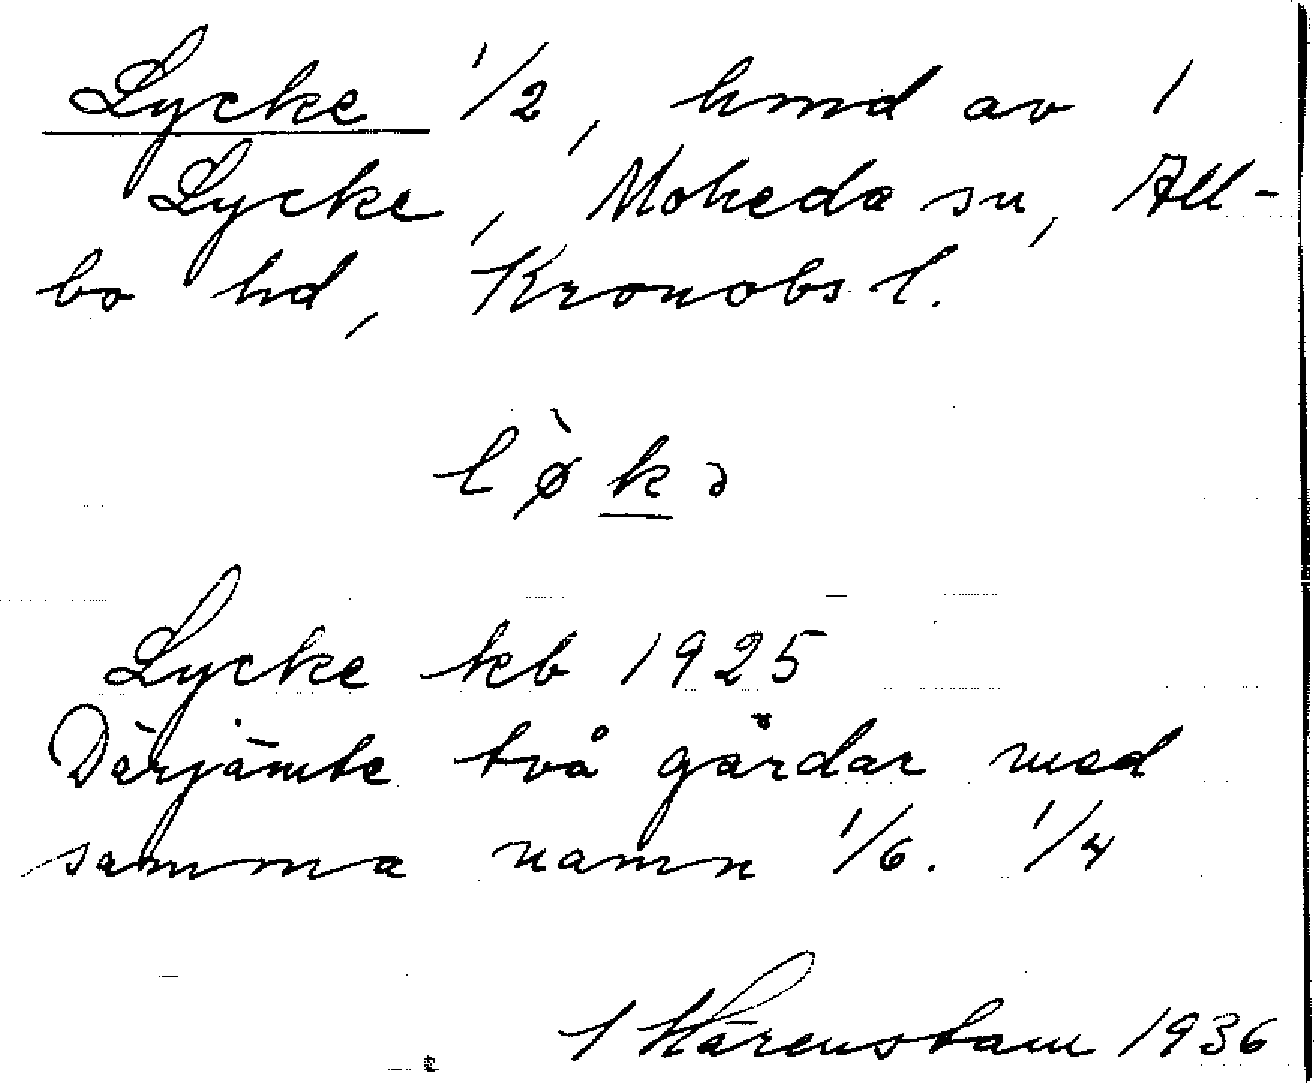 Lycke 1/2, hmd av 1
Lycke, Moheda sn, All-
bo hd, Kronobs l.
lø̀kə
Lycke kb 1925
Därjämte två gårdar med
samma namn 1/6. 1/4
Härenstam 1936